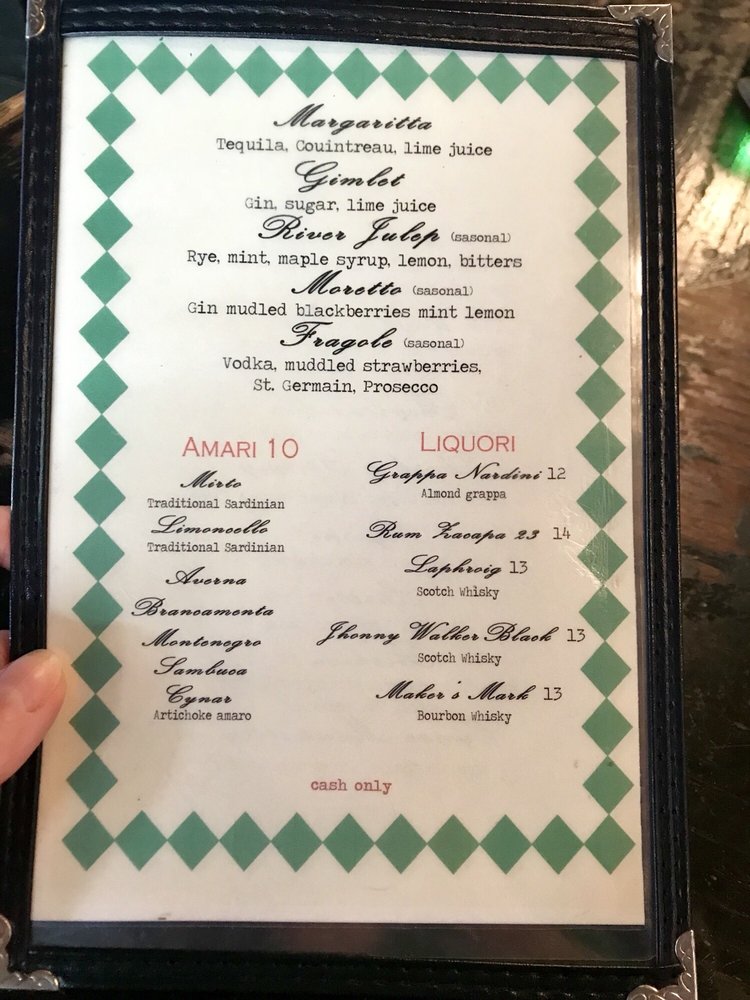 Margaritta
Tequila, Couintreau, lime juice
Gimlet
Gin, sugar, lime juice
River Julep (sasonal)
Rye, mint, maple syrup, lemon, bitters
Moretto (sasonal)
Gin mudled blackberries mint lemon
Fragole (sasonal)
Vodka, muddled strawberries,
St. Germain, Prosecco
AMARI 10
Mirto
Traditional Sardinian
Limoncello
Traditional Sardinian
Averna
Brancamenta
Montenegro
Sambuca
Cynar
Artichoke amaro
LIQUORI
Grappa Nardini 12
Almond grappa
Rum Zacapa 23 14
Laphroig 13
Scotch Whisky
Jhonny Walker Black 13
Scotch Whisky
Maker's Mark 13
Bourbon Whisky
cash only